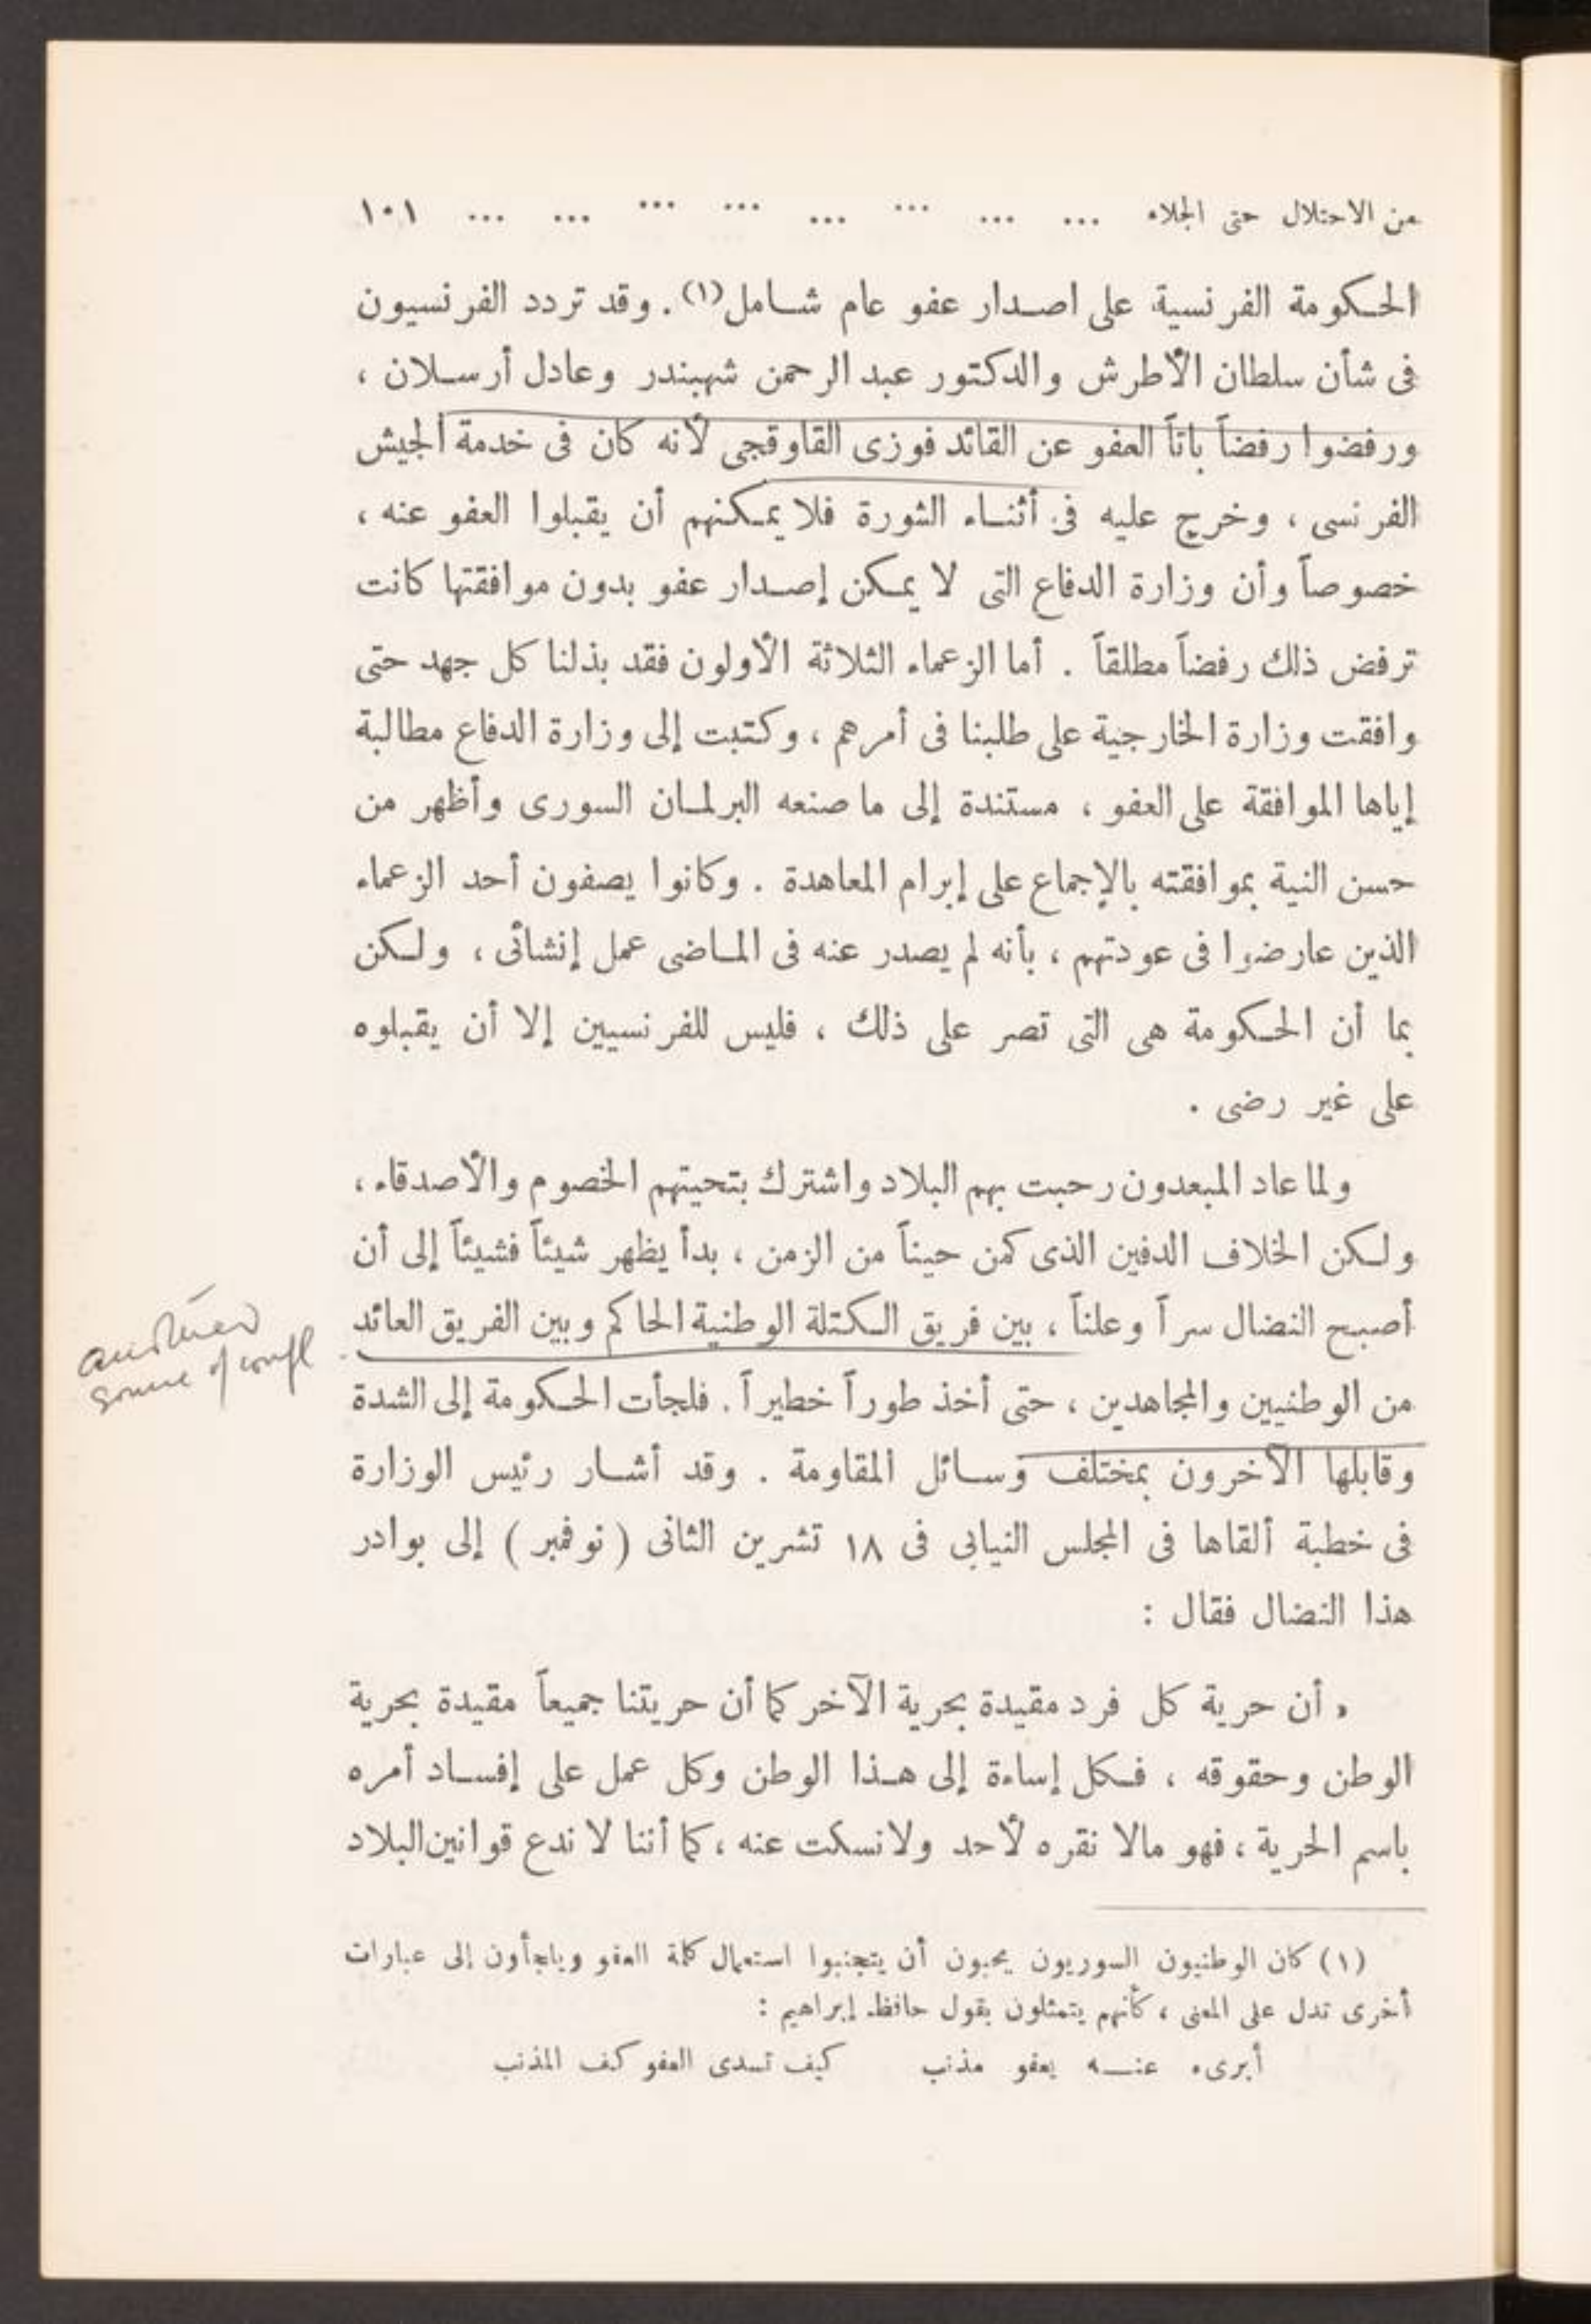 من الاحتلال حتى الجلاء ... ... ... ... ... ... ... ... ١٠١
الحكومة الفرنسية على اصدار عفو عام شامل(١). وقد تردد الفرنسيون
فى شأن سلطان الأطرش والدكتور عبد الرحمن شهبندر وعادل أرسلان ،
ورفضوا رفضاً باتاً العفو عن القائد فوزى القاوقجى لأنه كان فى خدمة الجيش
الفرنسى ، وخرج عليه فى أثناء الثورة فلا يمكنهم أن يقبلوا العفو عنه ،
خصوصاً وأن وزارة الدفاع التى لا يمكن إصدار عفو بدون موافقتها كانت
ترفض ذلك رفضاً مطلقاً . أما الزعماء الثلاثة الأولون فقد بذلنا كل جهد حتى
وافقت وزارة الخارجية على طلبنا فى أمرهم ، وكتبت إلى وزارة الدفاع مطالبة
إياها الموافقة على العفو ، مستندة إلى ما صنعه البرلمان السورى وأظهر من
حسن النية بموافقته بالإجماع على إبرام المعاهدة . وكانوا يصفون أحد الزعماء
الذين عارضوا فى عودتهم ، بأنه لم يصدر عنه فى الماضى عمل إنشائى ، ولكن
بما أن الحكومة هى التى تصر على ذلك ، فليس للفرنسيين إلا أن يقبلوه
على غير رضى .
ولما عاد المبعدون رحبت بهم البلاد واشترك بتحيتهم الخصوم والأصدقاء ،
ولكن الخلاف الدفين الذى كمن حيناً من الزمن ، بدأ يظهر شيئاً فشيئاً إلى أن
أصبح النضال سراً وعلناً ، بين فريق الكتلة الوطنية الحاكم وبين الفريق العائد
another
source of confl
من الوطنيين والمجاهدين ، حتى أخذ طوراً خطيراً . فلجأت الحكومة إلى الشدة
وقابلها الآخرون بمختلف وسائل المقاومة . وقد أشار رئيس الوزارة
فى خطبة ألقاها فى المجلس النيابى فى ١٨ تشرين الثانى ( نوفمبر ) إلى بوادر
هذا النضال فقال :
« أن حرية كل فرد مقيدة بحرية الآخر كما أن حريتنا جميعاً مقيدة بحرية
الوطن وحقوقه ، فكل إساءة إلى هذا الوطن وكل عمل على إفساد أمره
باسم الحرية ، فهو مالا نقره لأحد ولا نسكت عنه ، كما أننا لا ندع قوانين البلاد
(١) كان الوطنيون السوريون يحبون أن يتجنبوا استعمال كلمة العفو ويلجأون إلى عبارات
أخرى تدل على المعنى ، كأنهم يتمثلون بقول حافظ إبراهيم :
أبرىء عنه يعفو مذنب كيف تسدى العفو كف المذنب